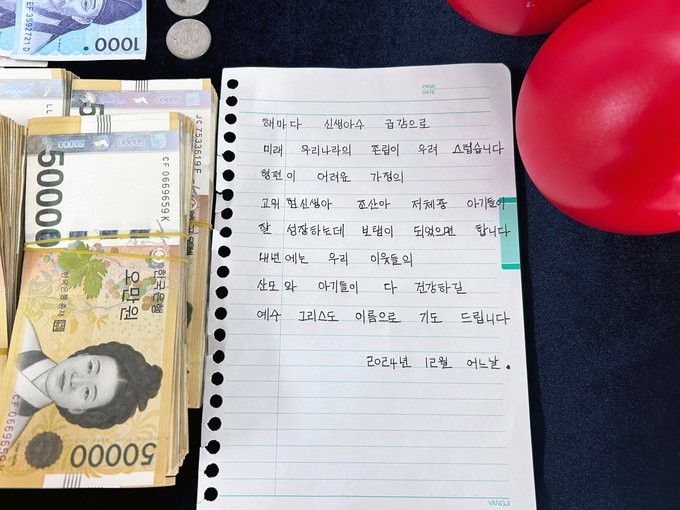 EF35927210
1000
50000
CF0669659K
한국은행
오만원
한국은행 총재
50000
CF0669659K
JC7533619F
100
PAGE
DATE
해마다 신생아수 급감으로
미래 우리나라의 존립이 우려 스럽습니다
형편이 어려운 가정의
고위험신생아 조산아 저체중 아기들이
잘 성장하는데 보탬이 되었으면 합니다
내년에는 우리 이웃들의
산모와 아기들이 다 건강하길
예수 그리스도 이름으로 기도 드립니다
2024년 12월 어느날.
YANGJI